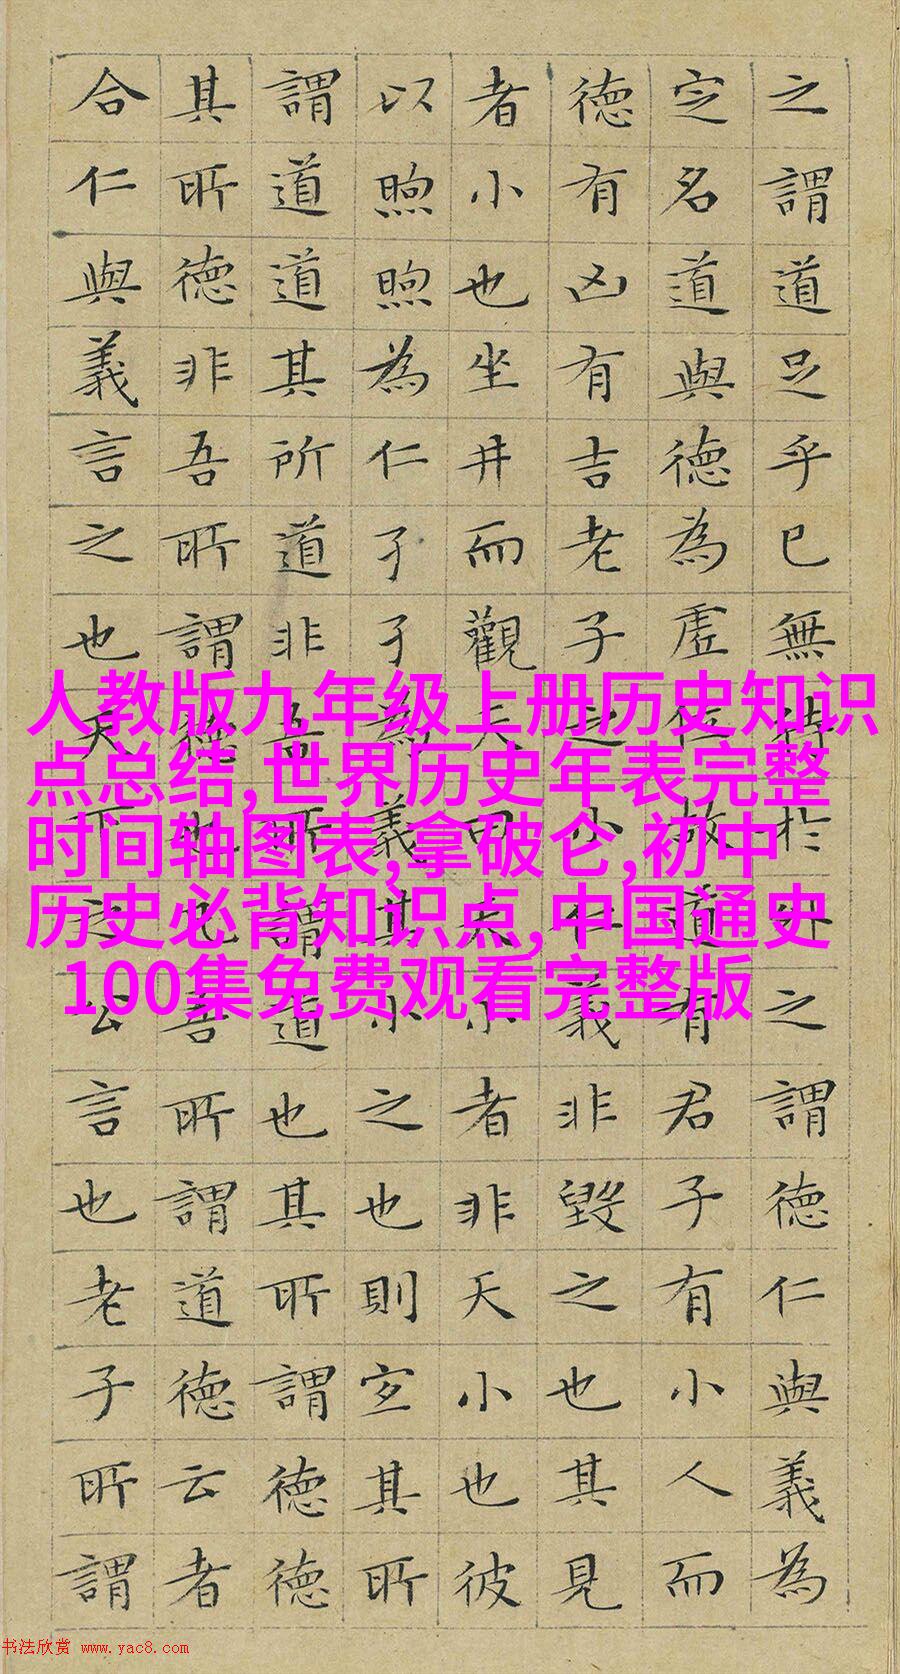 之謂道足乎己無待於外之謂德仁與義為
定名道與德為虛位故道有君子有小人而
德有凶有吉老子之小仁義非毀之也其見
者小也坐井而觀天曰天小者非天小也彼
以煦煦為仁孑孑為義其小之也則宜其所
謂道道其所道非吾所謂道也其所謂德德
其所德非吾所謂德也凡吾所謂道德云者
合仁與義言之也天下之公言也老子所謂
人教版九年级上册历史知识
点总结,世界历史年表完整
时间轴图表,拿破仑,初中
历史必背知识点,中国通史
100集免费观看完整版
书法欣赏 www.yac8.com